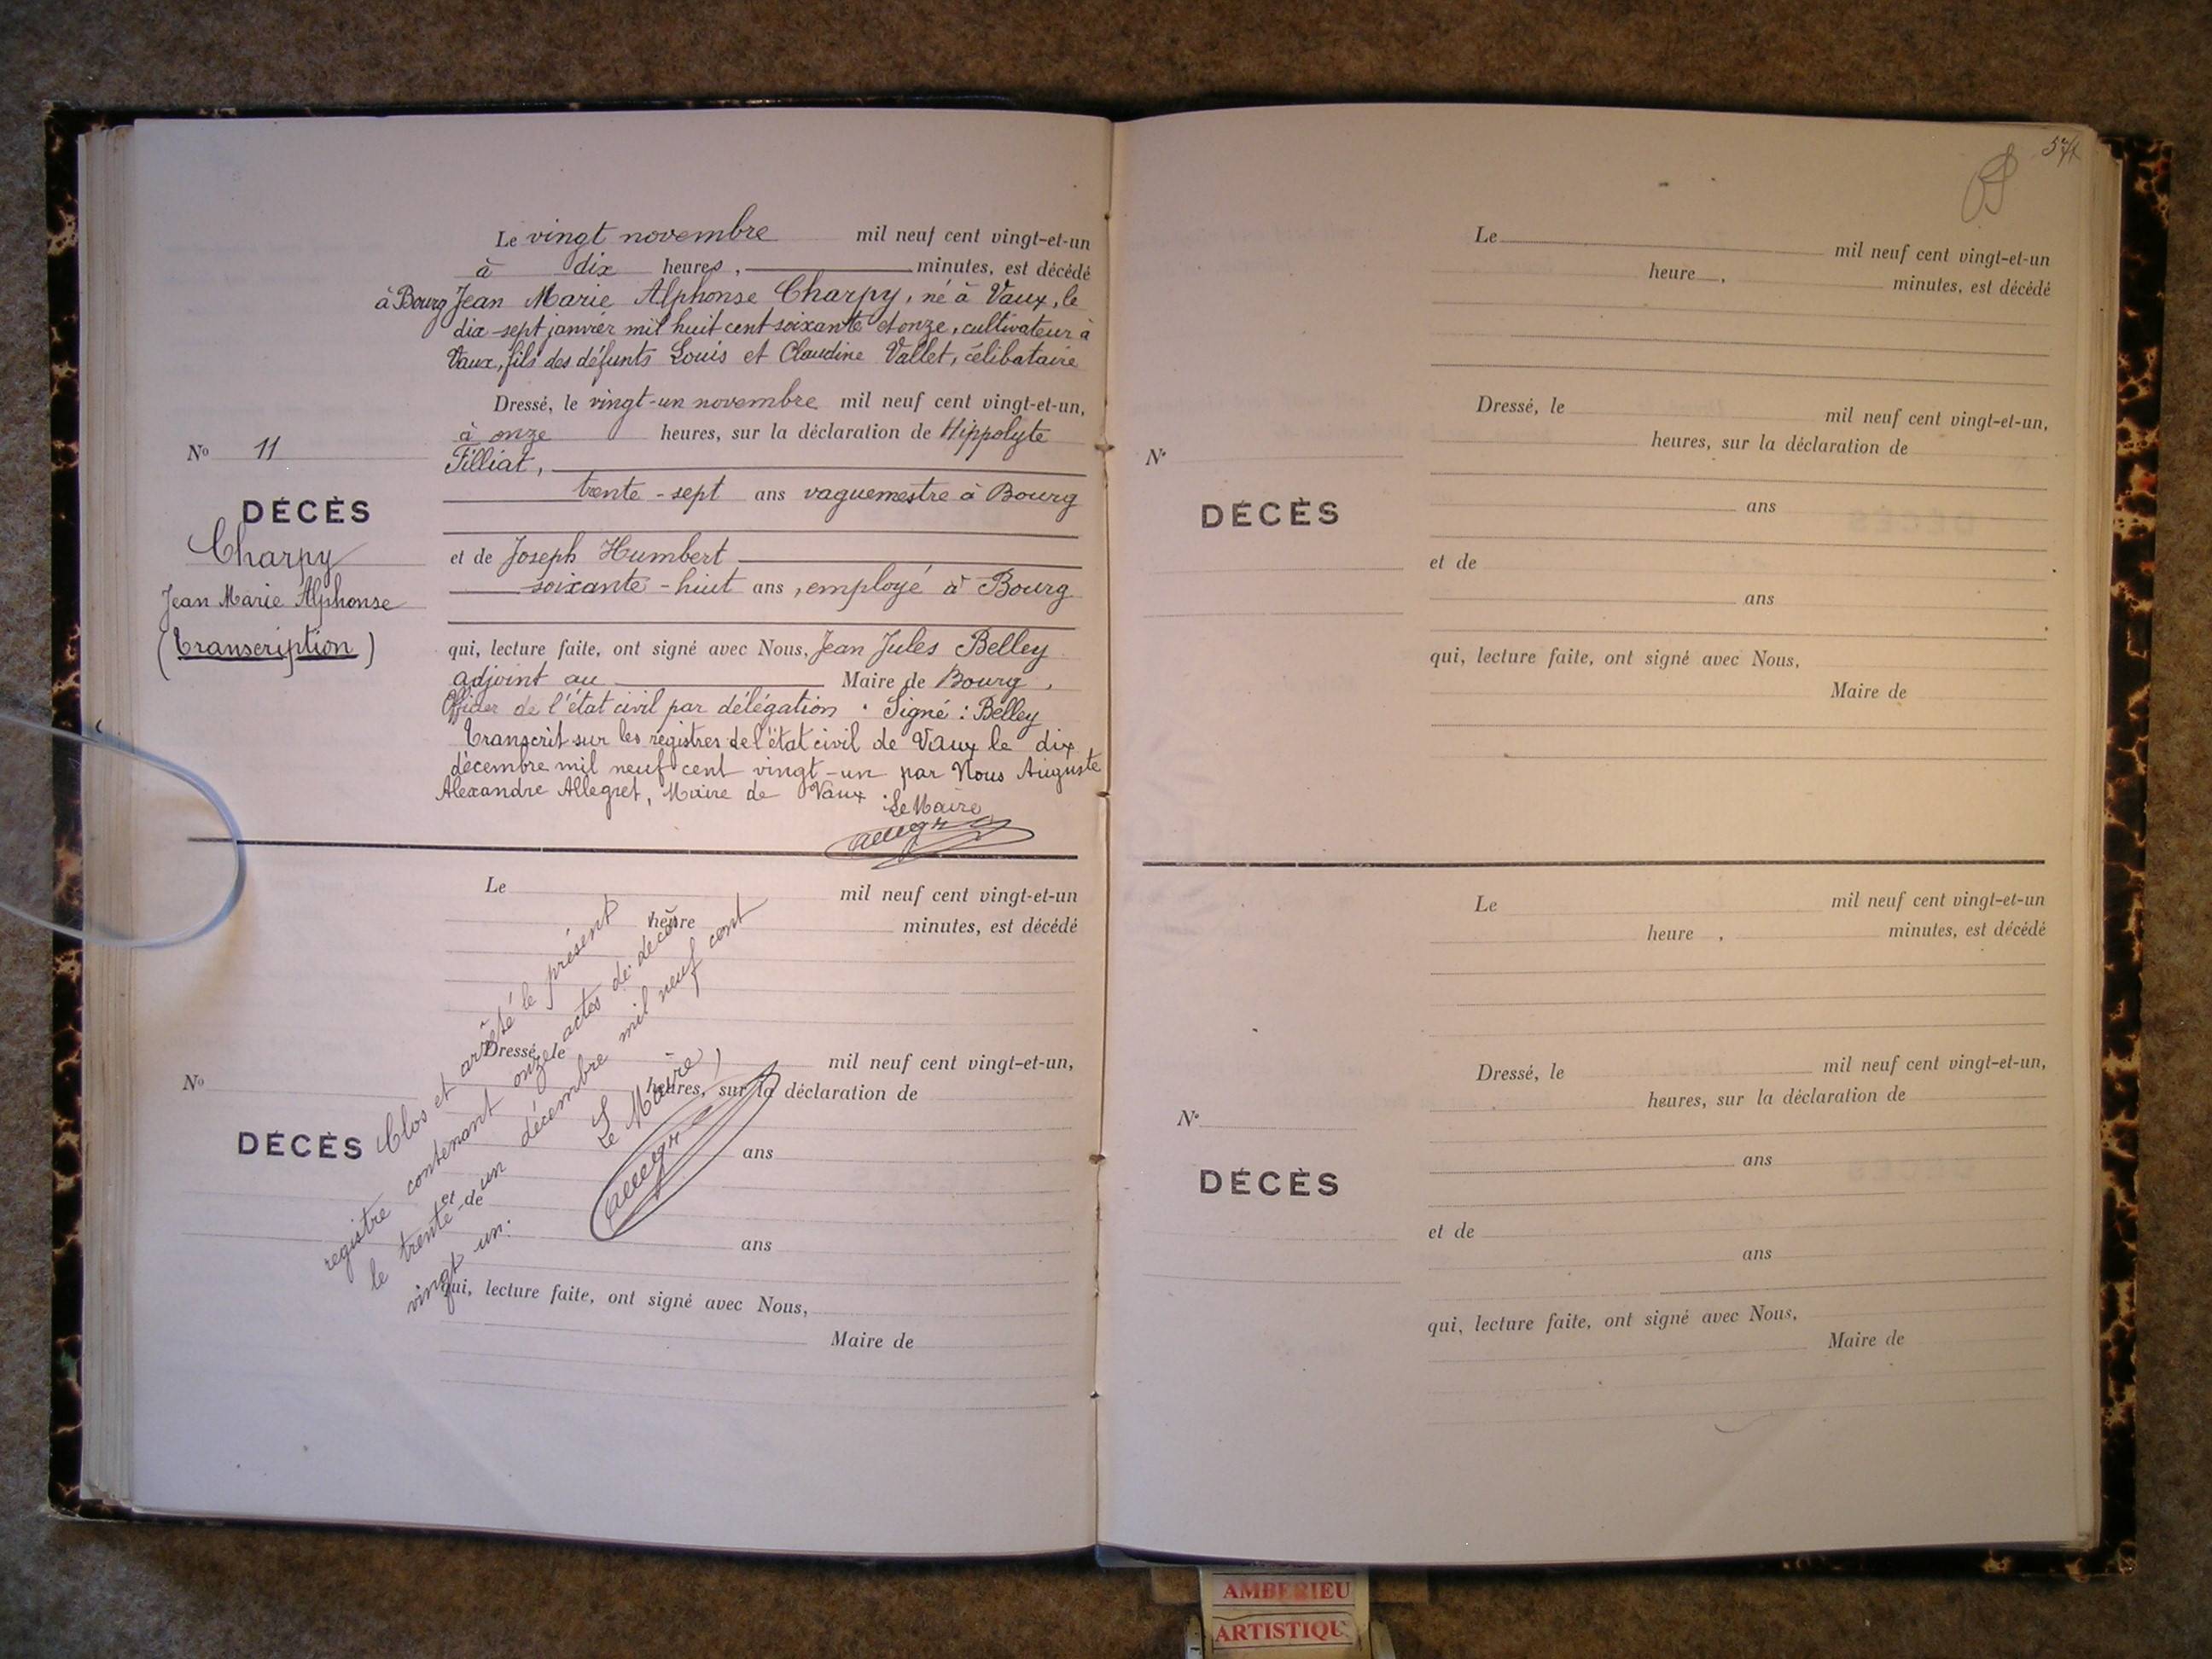 Le vingt novembre mil neuf cent vingt-et-un
à dix heures, minutes, est décédé
à Bourg Jean Marie Alphonse Charpy, né à Vaux, le
dix-sept janvier mil huit cent soixante et onze, cultivateur à
Vaux, fils des défunts Louis et Claudine Vallet, célibataire
Dressé, le vingt-un novembre mil neuf cent vingt-et-un,
à onze heures, sur la déclaration de Hippolyte
Filliat,
trente-sept ans vaguemestre à Bourg
et de Joseph Humbert
soixante-huit ans, employé à Bourg
qui, lecture faite, ont signé avec Nous, Jean Jules Belley
adjoint au Maire de Bourg,
Officier de l'état civil par délégation. Signé : Belley
Transcrit sur les registres de l'état civil de Vaux le dix
décembre mil neuf cent vingt-un par Nous Auguste
Alexandre Allegret, Maire de Vaux
Le Maire
No 11
DÉCÈS
Charpy
Jean Marie Alphonse
(Transcription)
Le mil neuf cent vingt-et-un
heure minutes, est décédé
Dressé, le mil neuf cent vingt-et-un,
heures, sur la déclaration de
ans
et de
ans
qui, lecture faite, ont signé avec Nous,
Maire de
No
DÉCÈS
Clos et arrêté le présent
registre contenant onze actes de décès
le trente-un décembre mil neuf cent
vingt un.
Le Maire
Le mil neuf cent vingt-et-un
heure, minutes, est décédé
Dressé, le mil neuf cent vingt-et-un,
heures, sur la déclaration de
ans
et de
ans
qui, lecture faite, ont signé avec Nous,
Maire de
No
DÉCÈS
Le mil neuf cent vingt-et-un
heure, minutes, est décédé
Dressé, le mil neuf cent vingt-et-un,
heures, sur la déclaration de
ans
et de
ans
qui, lecture faite, ont signé avec Nous,
Maire de
No
DÉCÈS
AMBERIEU
ARTISTIQU